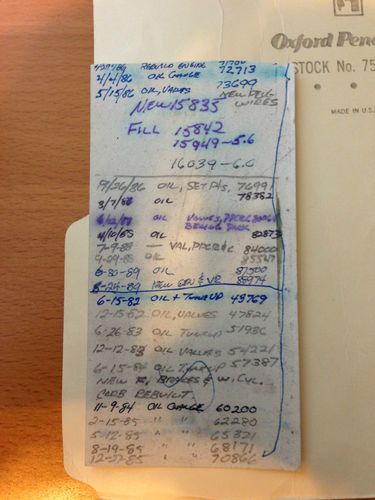 Oxford Pen
STOCK No. 75
MADE IN U.S.
REBUILD ENGINE
2/4/86 OIL CHANGE 72713
5/15/86 OIL, VALVES 73699
NEW PLUG
NEW 15835 WIRES
FILL 15842
15949-5.6
16039-6.0
OIL, SET P/S, 76991
3/7/88 OIL 78382
OIL VALVES,
4/10/88 OIL 82873
7-9-88 - VAL, 84000
9-29-88 OIL 85547
6-30-89 OIL 87500
8-24-89 NEW GEN & VR 88974
6-15-82 OIL + TUNEUP 43769
12-15-82 OIL, VALVES 47824
6-26-83 OIL TUNEUP 51936
12-12-83 OIL VALVES 54221
6-15-84 OIL TUNEUP 57387
NEW F, BRAKES & W. CYL.
CARB REBUILT.
11-9-84 OIL CHANGE 60200
2-15-85 " " 62280
5-12-85 " " 65321
8-19-85 " " 68171
12-22-85 " " 70866